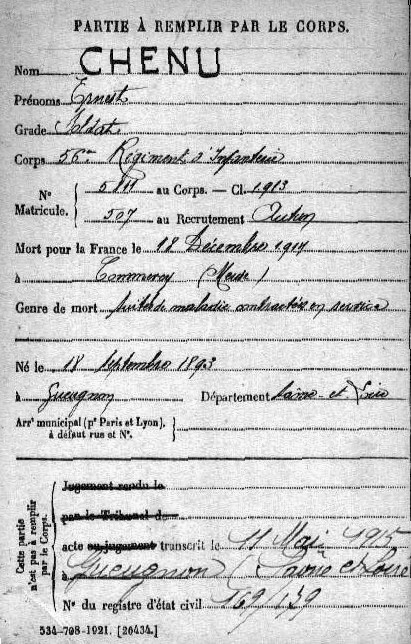 PARTIE À REMPLIR PAR LE CORPS.
Nom CHENU
Prénoms Ernest
Grade Soldat
Corps 56me Régiment d'Infanterie
No Matricule. { 5811 au Corps. — Cl. 1913
507 au Recrutement Autun
Mort pour la France le 18 Décembre 1914
à Commercy (Meuse)
Genre de mort suites de maladie contractée en service
Né le 18 septembre 1893
à Gueugnon Département Saône et Loire
Arrt municipal (pr Paris et Lyon), à défaut rue et No. }
Cette partie n'est pas à remplir par le Corps.
Jugement rendu le
par le Tribunal de
acte ou jugement transcrit le 11 Mai 1915
à Gueugnon (Saône et Loire
No du registre d'état civil 169/139
534-708-1921. [26434.]